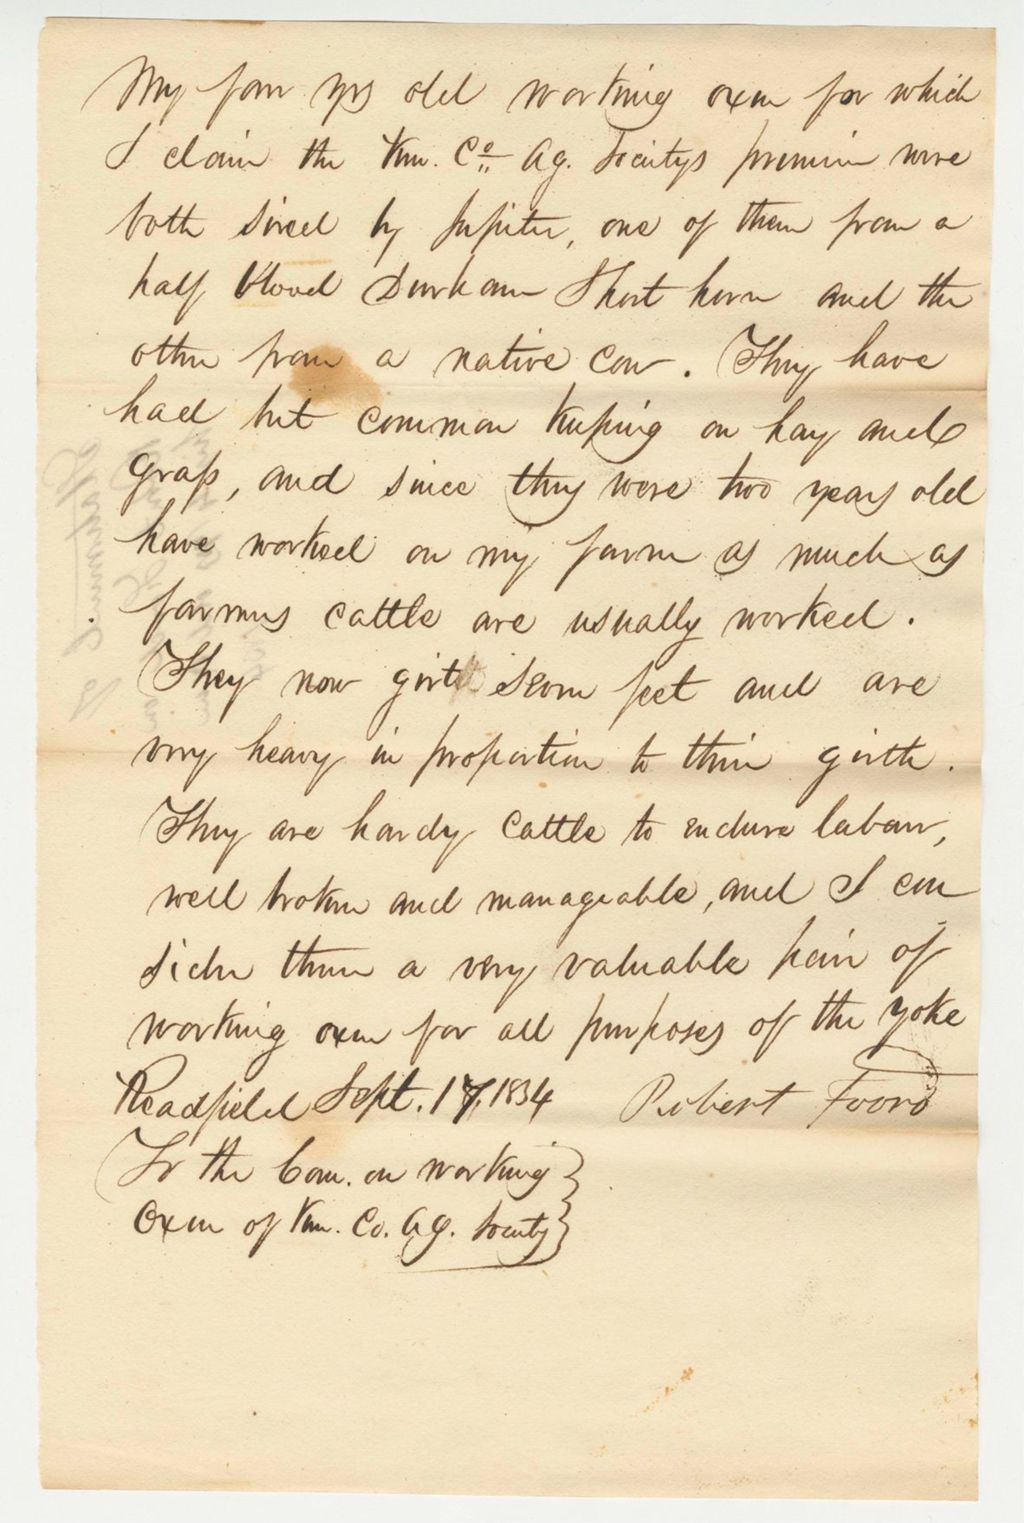 My four yrs old working oxen for which
I claim the Ken. Co. Ag. Societys premium were
both sired by Jupiter, one of them from a
half blood Durham Short horn and the
other from a native cow. They have
had but common keeping on hay and
grass, and since they were two years old
have worked on my farm as much as
farmers cattle are usually worked.
They now girt seven feet and are
very heavy in proportion to their girth.
They are hardy cattle to endure labour,
well broken and manageable, and I con
sider them a very valuable pair of
working oxen for all purposes of the yoke
Readfield Sept. 17, 1834 Robert
To the Com. on working
Oxen of Ken. Co. Ag. Society